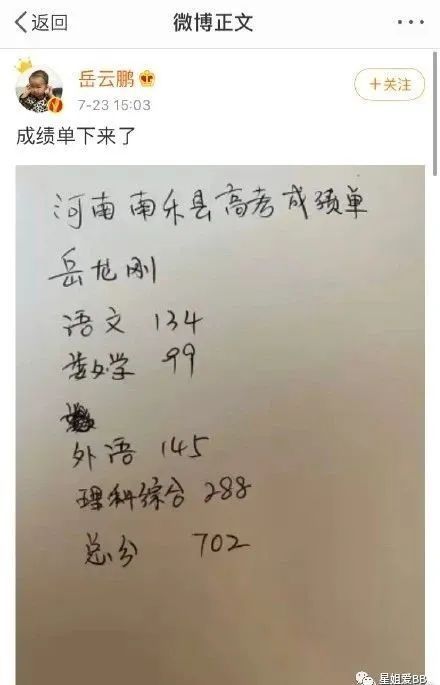 返回 微博正文 ···
岳云鹏
+关注
7-23 15:03
成绩单下来了
河南南乐县高考成绩单
岳龙刚
语文 134
数学 99
外语 145
理科综合 288
总分 702
星姐爱BB